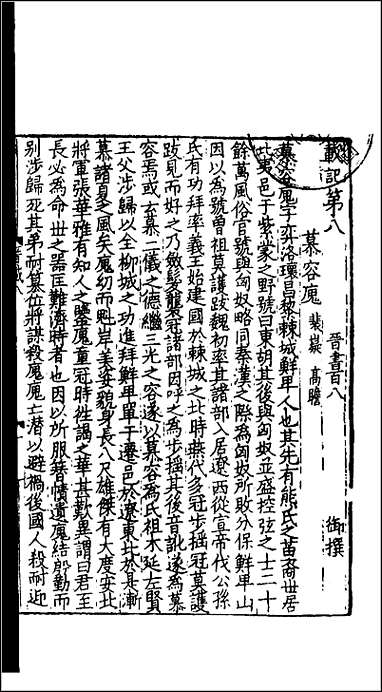 載記第八
晉書百八
御撰
慕容廆 裴嶷 高瞻
慕容廆字弈洛瓌昌黎棘城鮮卑人也其先有熊氏之苗裔世居
北夷邑于紫蒙之野號曰東胡其後與匈奴並盛控弦之士二十
餘萬風俗官號與匈奴略同秦漢之際為匈奴所敗分保鮮卑山
因以為號曾祖莫護跋魏初率其諸部入居遼西從宣帝代公孫
氏有功拜率義王始建國於棘城之北時燕代多冠步搖冠莫護
跋見而好之乃斂髮襲冠諸部因呼之為步搖其後音訛遂為慕
容焉或云慕二儀之德繼三光之容遂以慕容為氏祖木延左賢
王父涉歸以全柳城之功進拜鮮卑單于遷邑於遼東北於是漸
慕諸夏之風矣廆幼而魁岸美姿貌身長八尺雄傑有大度安北
將軍張華雅有知人之鑒廆童冠時往謁之華甚歎異謂曰君至
長必為命世之器匡難濟時者也因以所服簪幘遺廆結殷勤而
別涉歸死其弟耐篡位將謀殺廆廆亡潛以避禍後國人殺耐迎